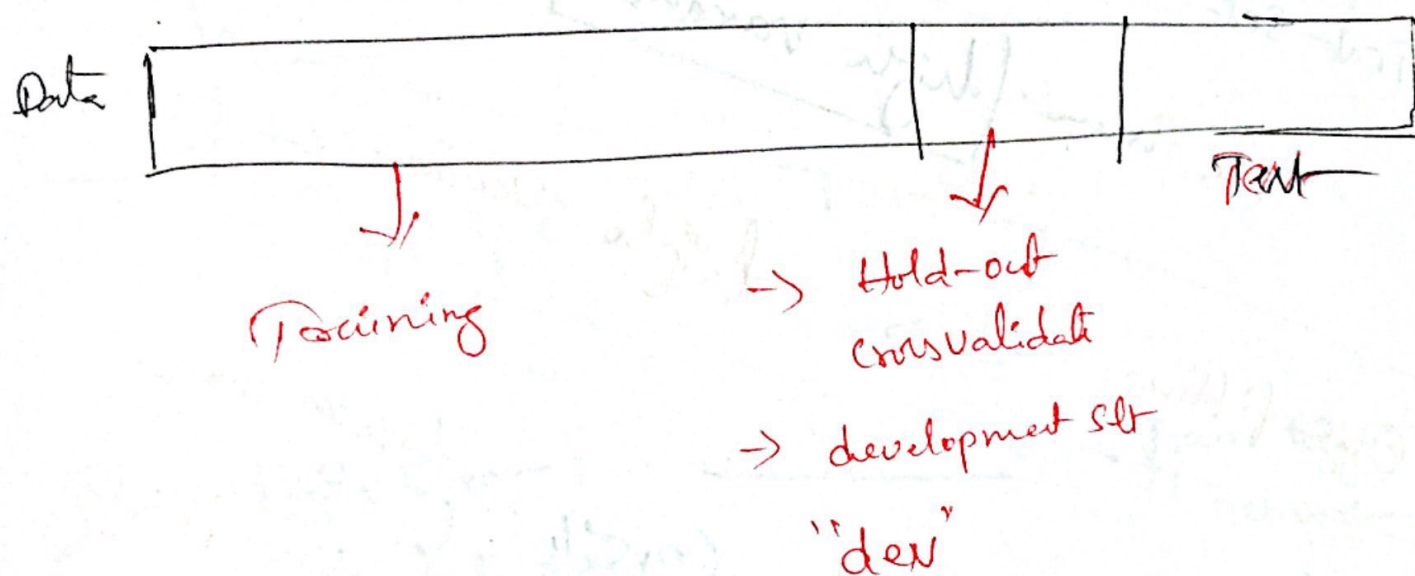 Data
Test
Training
-> Hold-out
crossvalidate
-> development set
"dev"